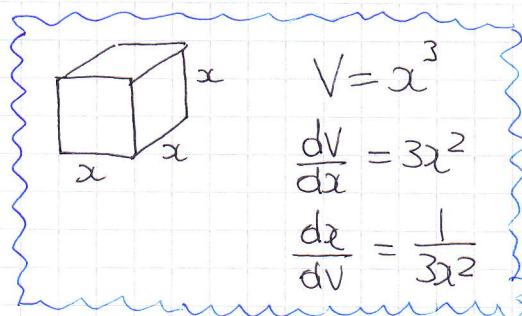 x
x
x
V = x³
dV/dx = 3x²
dx/dV = 1/3x²